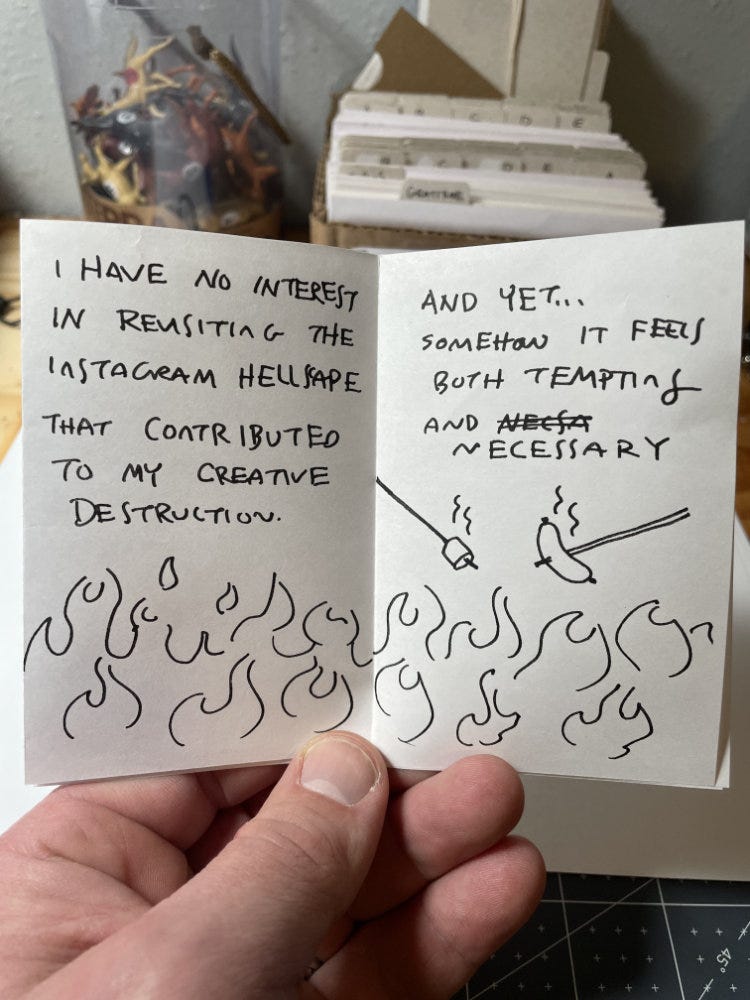 I HAVE NO INTEREST
IN REVISITING THE
INSTAGRAM HELLSCAPE
THAT CONTRIBUTED
TO MY CREATIVE
DESTRUCTION.
AND YET...
SOMEHOW IT FEELS
BOTH TEMPTING
AND NECSA
NECESSARY
C D E
45°